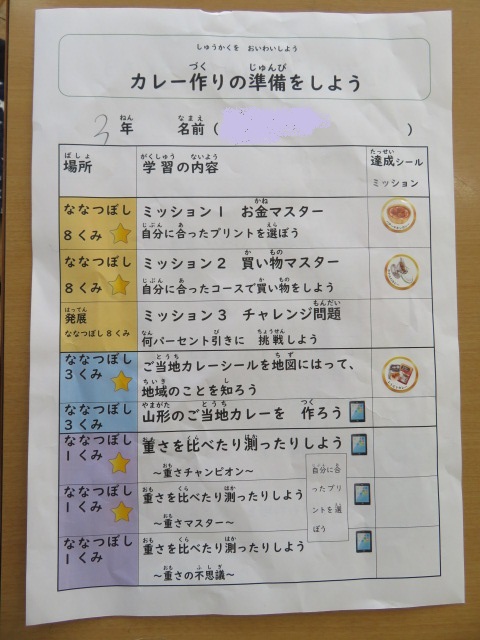 しゅうかくを おいわいしよう
カレー作りの準備をしよう
3年 名前( )
場所 学習の内容 達成シール
ミッション
ななつぼし
8くみ
ミッション1 お金マスター
自分に合ったプリントを選ぼう
ななつぼし
8くみ
ミッション2 買い物マスター
自分に合ったコースで買い物をしよう
発展
ななつぼし8くみ
ミッション3 チャレンジ問題
何パーセント引きに 挑戦しよう
ななつぼし
3くみ
ご当地カレーシールを地図にはって、
地域のことを知ろう
ななつぼし
3くみ
山形のご当地カレーを 作ろう
ななつぼし
1くみ
重さを比べたり測ったりしよう
~重さチャンピオン~
ななつぼし
1くみ
重さを比べたり測ったりしよう
~重さマスター~
自分に合
ったプリ
ントを選
ぼう
ななつぼし
1くみ
重さを比べたり測ったりしよう
~重さの不思議~